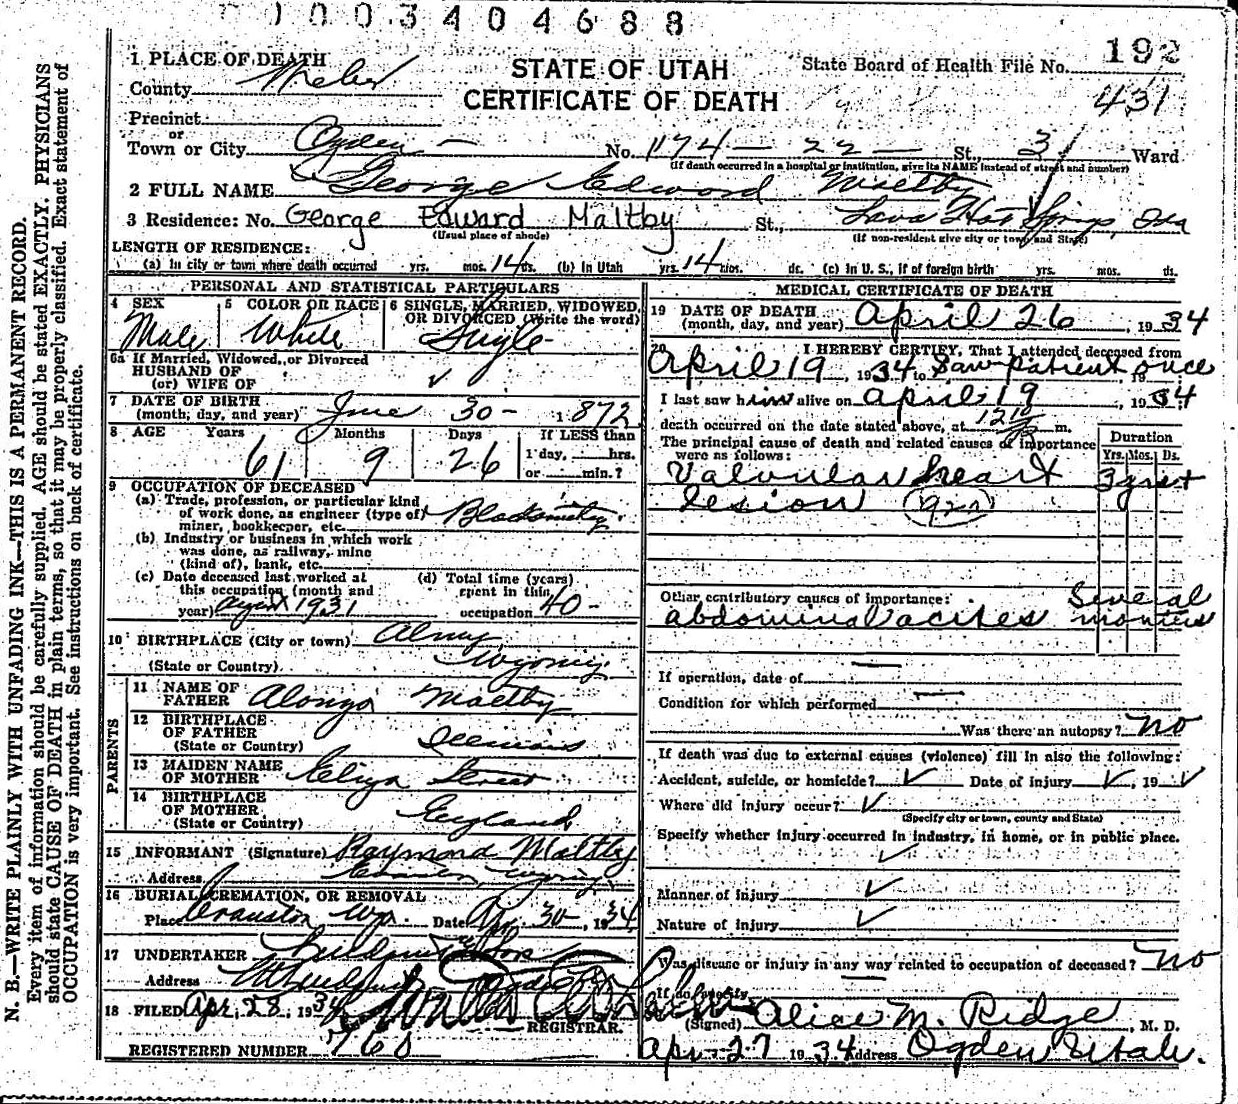 0003404688
1 PLACE OF DEATH
STATE OF UTAH
State Board of Health File No. 192
County Weber
CERTIFICATE OF DEATH
431
Precinct
or
Town or City Ogden No. 1174 - 22 - St., 3 Ward
(If death occurred in a hospital or institution, give its NAME instead of street and number)
2 FULL NAME George Edword Maltby
3 Residence: No. George Edward Maltby St., Lava Hot Springs, Ida
(Usual place of abode) (If non-resident give city or town and State)
LENGTH OF RESIDENCE:
(a) In city or town where death occurred yrs. mos. 14 ds. (b) In Utah yrs. 14 mos. ds. (c) In U. S., if of foreign birth yrs. mos. ds.
PERSONAL AND STATISTICAL PARTICULARS
4 SEX 5 COLOR OR RACE 6 SINGLE, MARRIED, WIDOWED,
OR DIVORCED (Write the word)
Male White Single
6a If Married, Widowed, or Divorced
HUSBAND OF
(or) WIFE OF
7 DATE OF BIRTH
(month, day, and year) June 30 - 1872
8 AGE Years Months Days If LESS than
1 day, hrs.
61 9 26 or min.?
9 OCCUPATION OF DECEASED
(a) Trade, profession, or particular kind
of work done, as engineer (type of)
miner, bookkeeper, etc.
(b) Industry or business in which work
was done, as railway, mine
(kind of), bank, etc.
(c) Date deceased last worked at
this occupation (month and
year) August 1931
(d) Total time (years)
spent in this
occupation 40 -
10 BIRTHPLACE (City or town) Almy
(State or Country) Wyoming
PARENTS
11 NAME OF
FATHER Alonzo Maltby
12 BIRTHPLACE
OF FATHER
(State or Country) Illinois
13 MAIDEN NAME
OF MOTHER Eliza
14 BIRTHPLACE
OF MOTHER
(State or Country) England
15 INFORMANT (Signature) Raymond Maltby
Address Wyoming
16 BURIAL, CREMATION, OR REMOVAL
Place Wyo. Date Apr. 30 - , 1934
17 UNDERTAKER
Address
18 FILED Apr. 28, 1934
REGISTRAR.
REGISTERED NUMBER
MEDICAL CERTIFICATE OF DEATH
19 DATE OF DEATH
(month, day, and year) April 26 , 1934
20 I HEREBY CERTIFY, That I attended deceased from
April 19 , 1934 to Saw patient once 19
I last saw him alive on April 19 , 1934
death occurred on the date stated above, at m.
The principal cause of death and related causes of importance
were as follows:
Duration
Yrs. Mos. Ds.
Valvular heart
lesion
Other contributory causes of importance:
abdominal acites Several
months
If operation, date of
Condition for which performed
Was there an autopsy? No
If death was due to external causes (violence) fill in also the following:
Accident, suicide, or homicide? Date of injury , 19
Where did injury occur?
(Specify city or town, county and State)
Specify whether injury occurred in industry, in home, or in public place.
Manner of injury
Nature of injury
Was disease or injury in any way related to occupation of deceased? No
If so, specify
(Signed) Alice M. Ridge , M. D.
Apr - 27 1934 Address Ogden Utah.
N. B.—WRITE PLAINLY WITH UNFADING INK—THIS IS A PERMANENT RECORD.
Every item of information should be carefully supplied. AGE should be stated EXACTLY. PHYSICIANS
should state CAUSE OF DEATH in plain terms, so that it may be properly classified. Exact statement of
OCCUPATION is very important. See instructions on back of certificate.